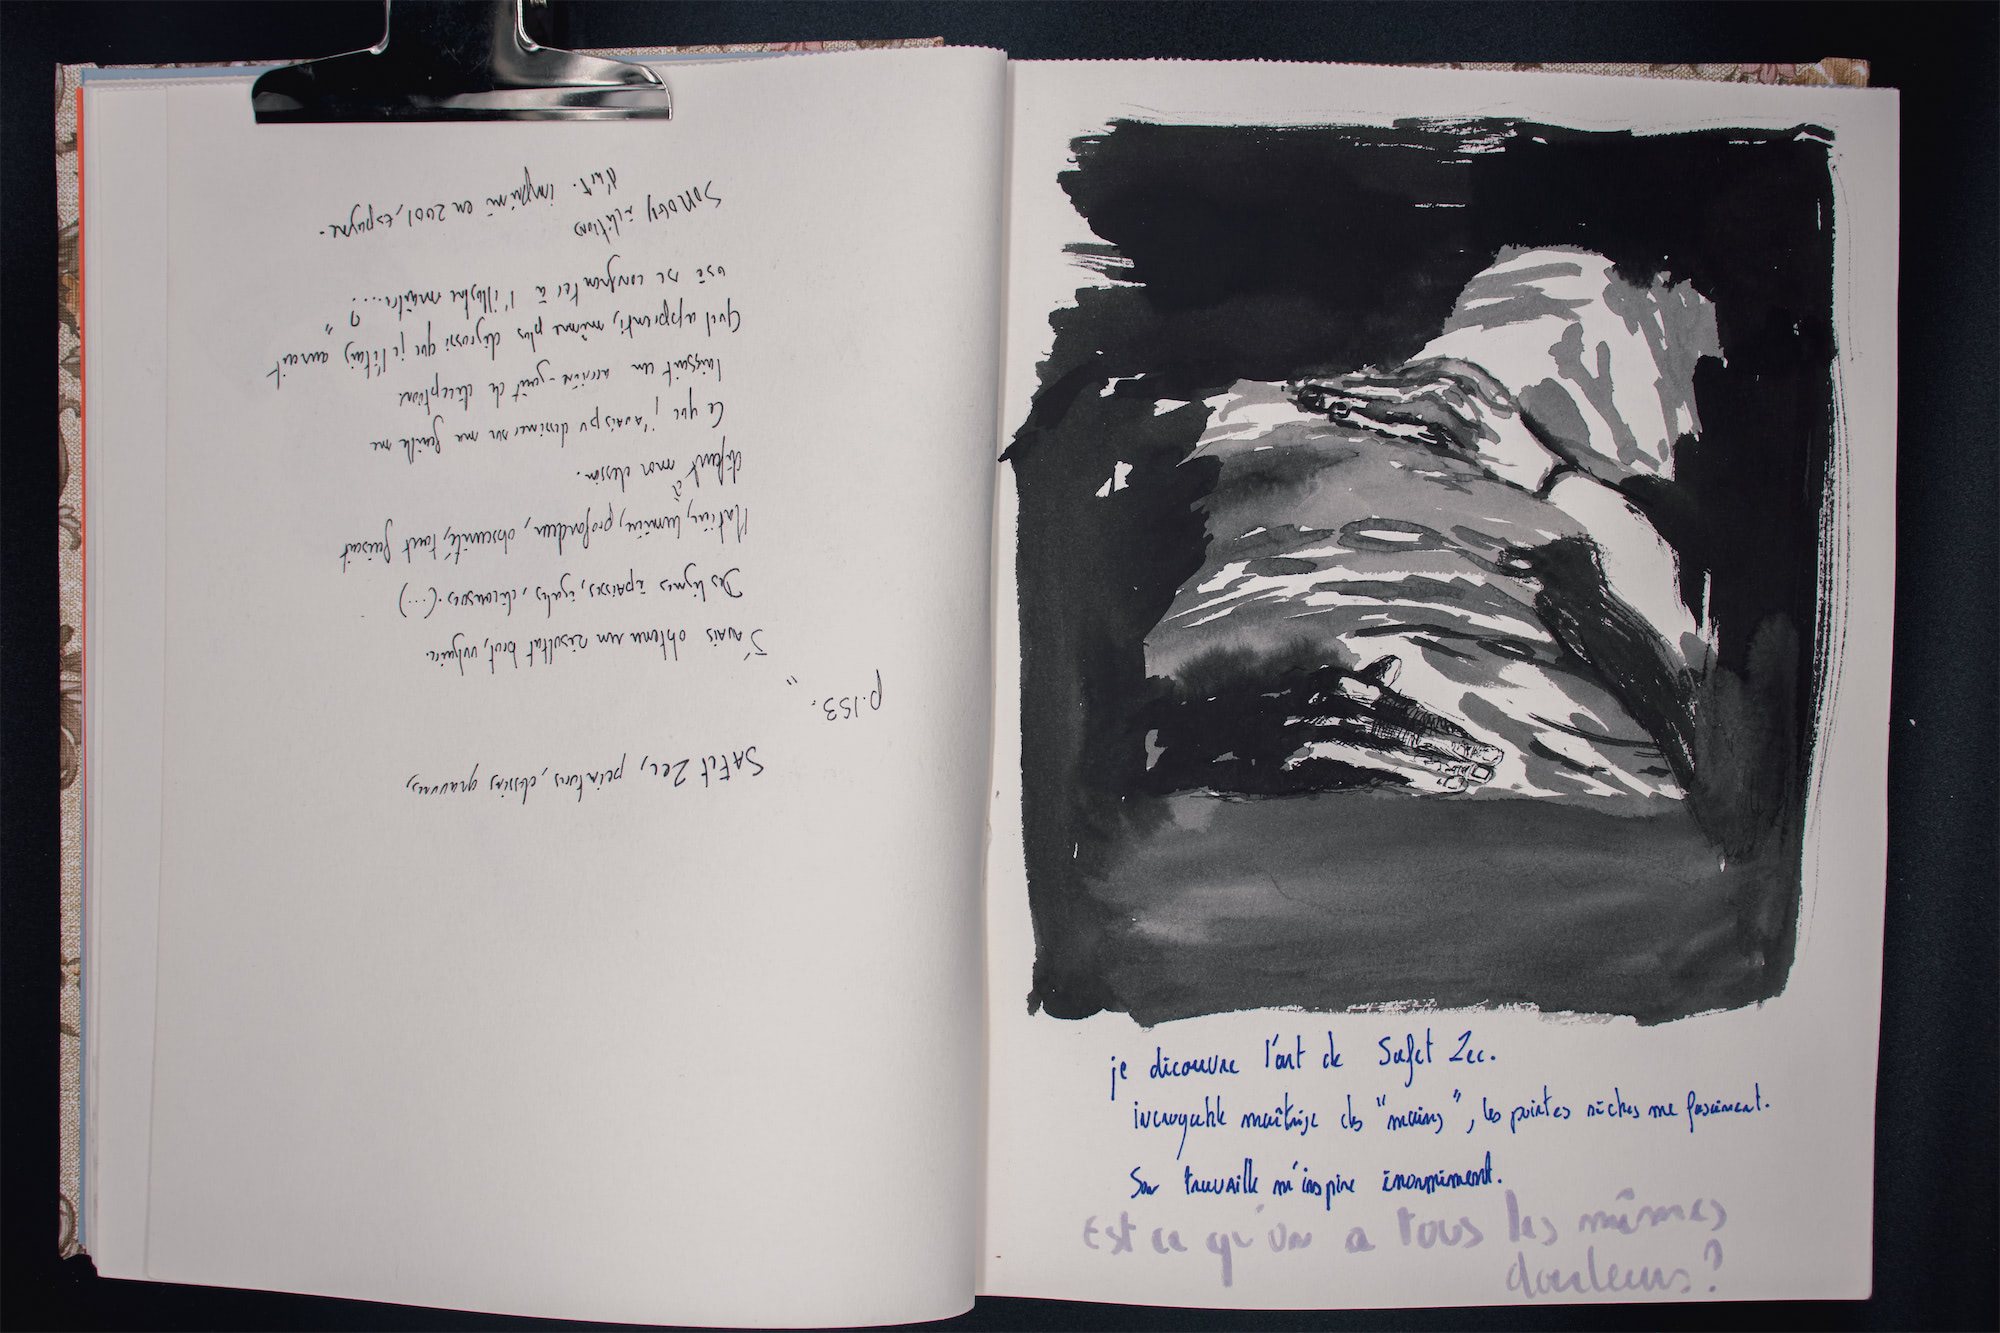 SAFET Zec, peintures, dessins gravures,
p.153. "
J'avais obtenu un résultat brut, vulgaire.
Des lignes épaisses, égales, décousues.(...)
Matière, lumière, profondeur, obscurité, tout faisait
défaut à mon dessin.
Ce que j'avais pu dessiner sur ma feuille me
laissait un arrière-goût de déception.
Quel apprenti, même plus dégrossi que je l'étais, aurait
osé se confronter à l'illustre maître....? "
SOMOGY éditions
d'art. imprimé en 2001, Espagne.
je découvre l'art de Safet Zec.
incroyable maîtrise des "mains", les pointes sèches me fascinent.
Son travaille m'inspire énormément.
Est ce qu'on a tous les mêmes
douleurs?